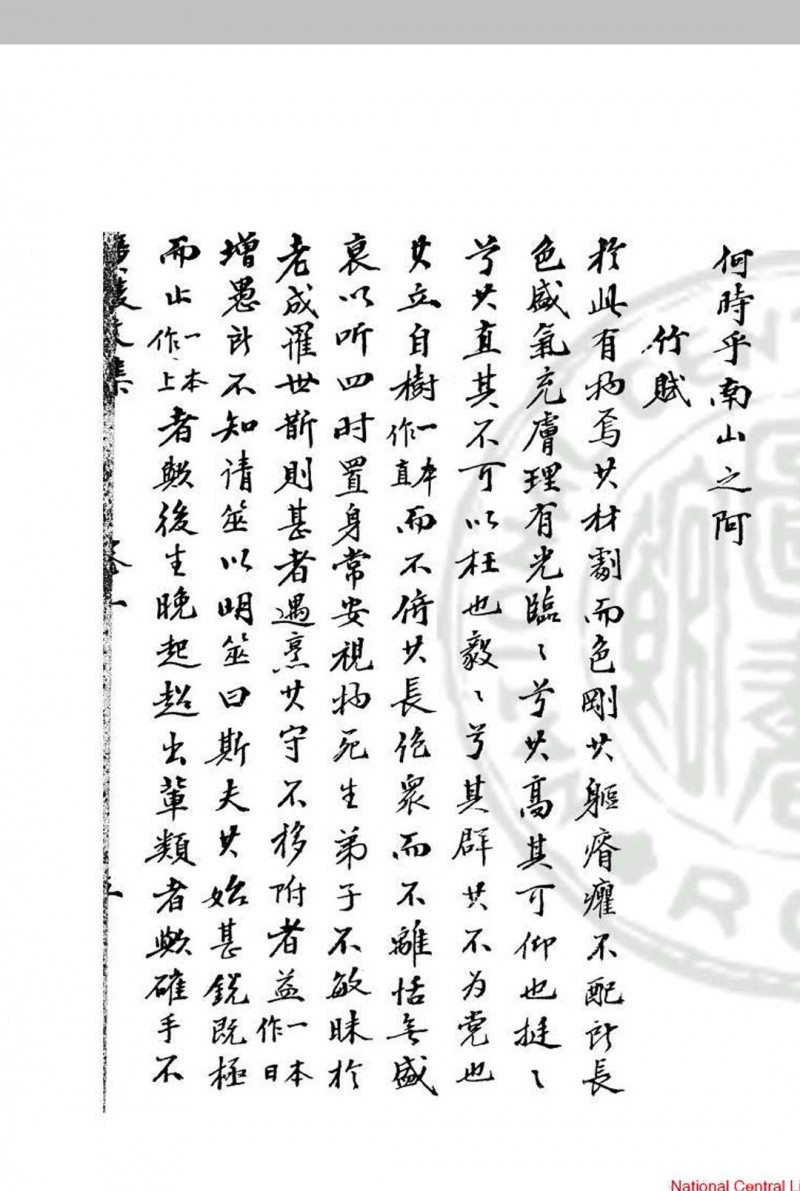 何時乎南山之阿
竹賦
於此有物焉其材勁而色剛其軀瘠癯不配所長
色盛氣充膚理有光臨〻兮其高其可仰也挺〻
兮其直其不可以枉也毅〻兮其群其不为党也
其立自樹一本作直而不倚其長絶眾而不離恬無盛
衰以听四时置身常安視物死生弟子不敏昧於
老成罹世斯則甚者遇烹其守不移附者益一本作日
增愚所不知请筮以明筮曰斯夫其始甚鋭既極
而止一本作上者歟後生晚起超出軰類者歟確乎不
廣陵文集 卷一
National Central Li